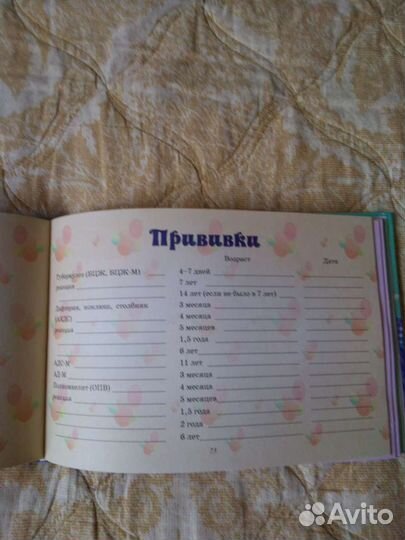 Прививки
Возраст Дата
Туберкулез (БЦЖ, БЦЖ-М) 4–7 дней
реакция 7 лет
14 лет (если не было в 7 лет)
Дифтерия, коклюш, столбняк 3 месяца
(АКДС) 4 месяца
реакция 5 месяцев
1,5 года
6 лет
АДС-М 11 лет
АД-М 3 месяца
Полиомиелит (ОПВ) 4 месяца
реакция 5 месяцев
1,5 года
2 года
6 лет
73
Avito